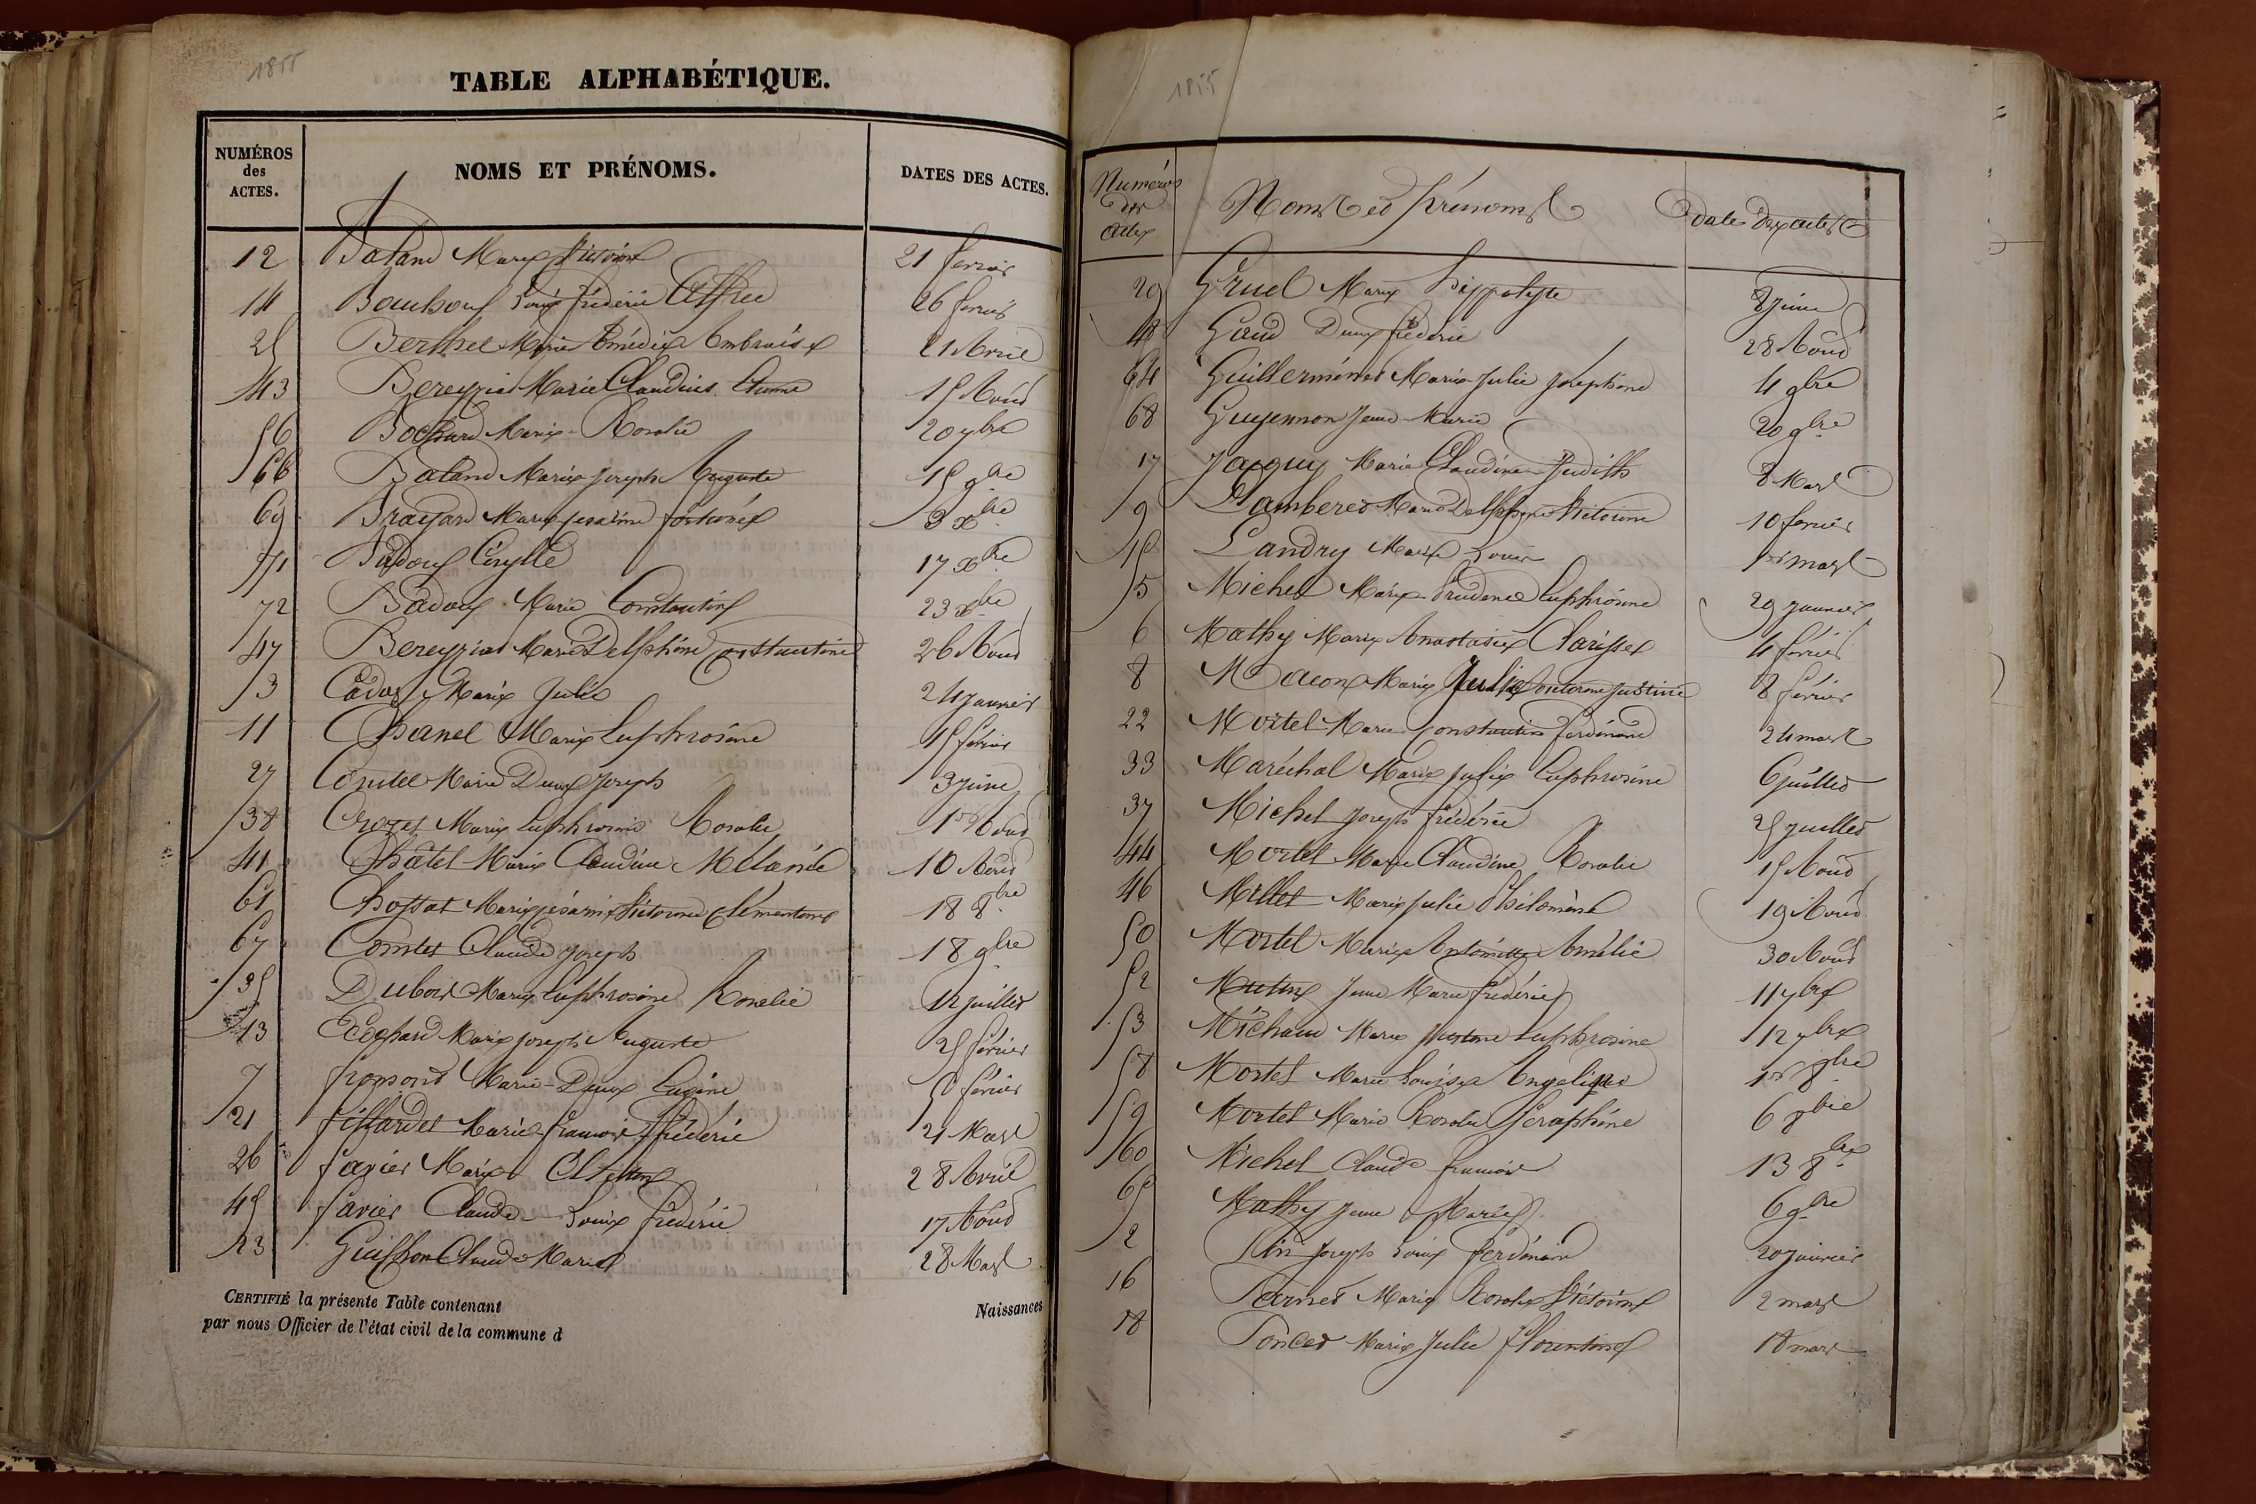 1855
TABLE ALPHABÉTIQUE.
NUMÉROS des ACTES.
NOMS ET PRÉNOMS.
DATES DES ACTES.
12 Baland Marie Victoire 21 fevrier
14 Louis frédéric Alfred 26 fevrier
25 Berthet Marie Amédée Ambroise 21 Avril
43 Bereyziat Marie Claudius Etienne 15 Aout
56 Bochard Marie Rosalie 20 7bre
66 Baland Marie Joseph Auguste 15 9bre
69 Brayard Marie fortunée 3 xbre
71 Badoux Cirylle 17 xbre
72 Badoux Marie Constantin 23 xbre
47 Bereyziat Marie Delphine Constantine 26 Aout
3 Cadoz Marie Julie 24 janvier
11 Chanel Marie Euphrosine 15 février
27 Comtet Marie Denis Joseph 3 juin
38 Crozet Marie Euphrosine Rosalie 1er Aout
41 Châtel Marie Claudine Mélanie 10 Aout
61 Chossat Marie Victorine Clémentine 18 8bre
67 Comtet Claude joseph 18 9bre
35 Dubois Marie Euphrosine Rosalie 12 juillet
13 Ecochard Marie joseph Auguste 25 février
7 fromont Marie Denis Eugène 5 février
21 fillardet Marie francois frédéric 21 Mars
26 favier Marie 28 Avril
45 favier Claude Louis frédéric 17 Aout
23 Guichon Claude Marie 28 Mars
CERTIFIÉ la présente Table contenant
Naissances
par nous Officier de l'état civil de la commune d
1855
Numéros des actes
Noms et prénoms
date des actes
29 Gruel Marie hippolyte 8 juin
48 Gaud Denis frédéric 28 Aout
64 Guillerminet Marie Julie Joséphine 4 9bre
68 Guyennon Jean Marie 20 9bre
17 Jacquy Marie Claudine Judith 8 Mars
9 Lamberet Marie Delphine Victorine 10 fevrier
15 Landry Marie Louise 1er mars
5 Michel Marie Prudence Euphrosine 29 janvier
6 Mathy Marie Anastasie Clarisse 4 février
8 Macon Marie Julie Justine 8 février
22 Mortel Marie Constantin ferdinand 24 mars
33 Maréchal Marie Julie Euphrosine 6 juillet
37 Michel Joseph frédéric 25 juillet
44 Mortel Marie Claudine Rosalie 15 Aout
46 Millet Marie Julie Philomène 19 Aout
50 Mortel Marie Antoinette Amélie 30 Aout
52 Mutin Jean Marie frédéric 11 7bre
53 Michaud Marie Justine Euphrosine 12 7bre
58 Mortel Marie Louise Angelique 1er 8bre
59 Mortel Marie Rosalie Seraphine 6 8bre
60 Michel Claude francois 13 8bre
65 Mathy Jean Marie 6 9bre
2 Pin Joseph Louis ferdinand 20 janvier
16 Pernet Marie Rosalie Victoire 2 mars
18 Poncet Marie Julie florentine 18 mars